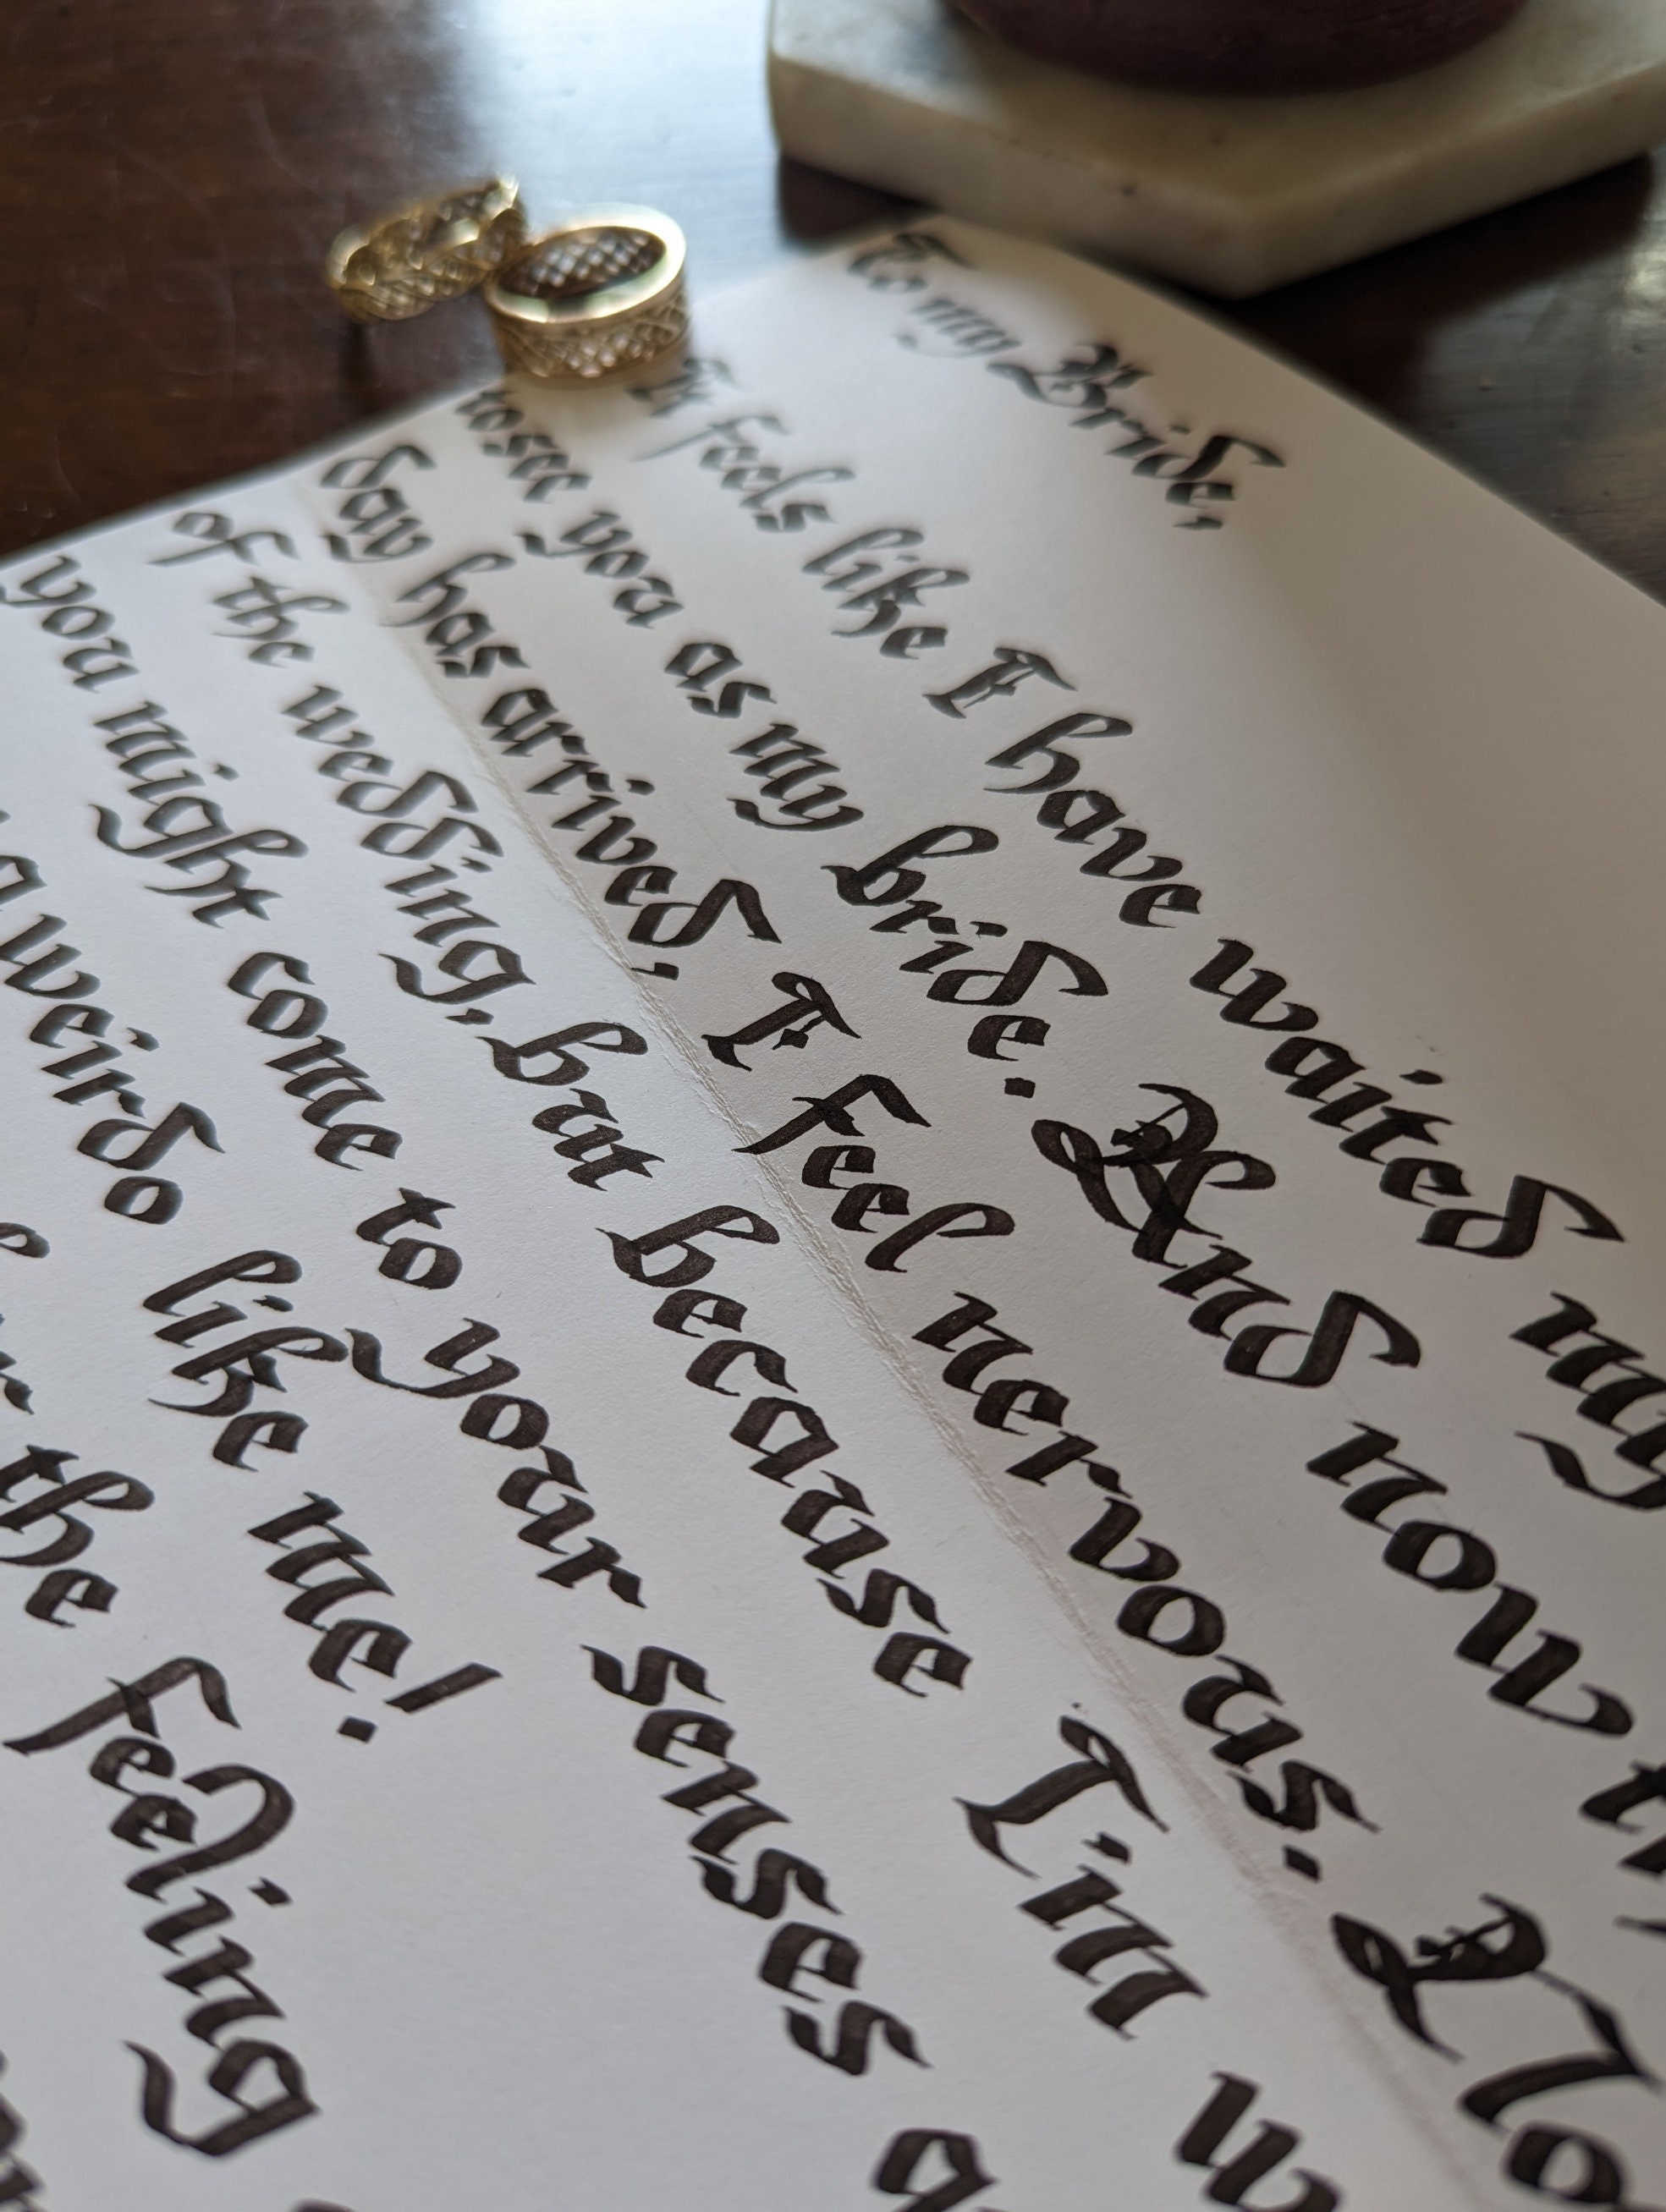 To my Bride,
It feels like I have waited my
to see you as my bride. And now th
day has arrived, I feel nervous. No
of the wedding, but because I'm w
you might come to your senses a
a weirdo like me!
the feeling